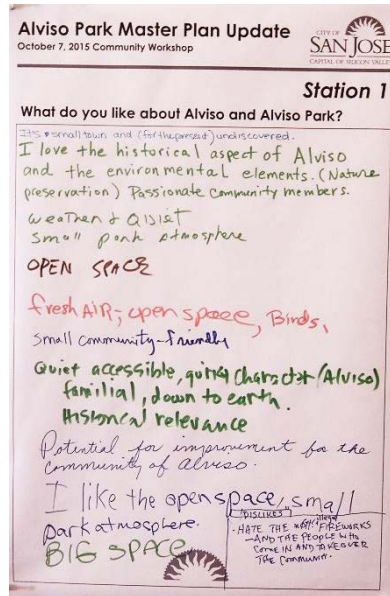 Alviso Park Master Plan Update
October 7, 2015 Community Workshop
CITY OF
SAN JOSE
CAPITAL OF SILICON VALLEY
Station 1
What do you like about Alviso and Alviso Park?
Its small town and (for the present) undiscovered.
I love the historical aspect of Alviso
and the environmental elements. (Nature
preservation) Passionate community members.
weather & Quiet
Small park atmosphere
OPEN SPACE
fresh AIR, open space, Birds,
small community-friendly
Quiet accessible, quirky character (Alviso)
familial, down to earth.
Historical relevance
Potential for improvement for the
community of Alviso.
I like the open space, small
park atmosphere.
BIG SPACE
"DISLIKES"
-HATE THE FIREWORKS
-AND THE PEOPLE WHO
COME IN AND TAKEOVER
THE COMMUNITY.